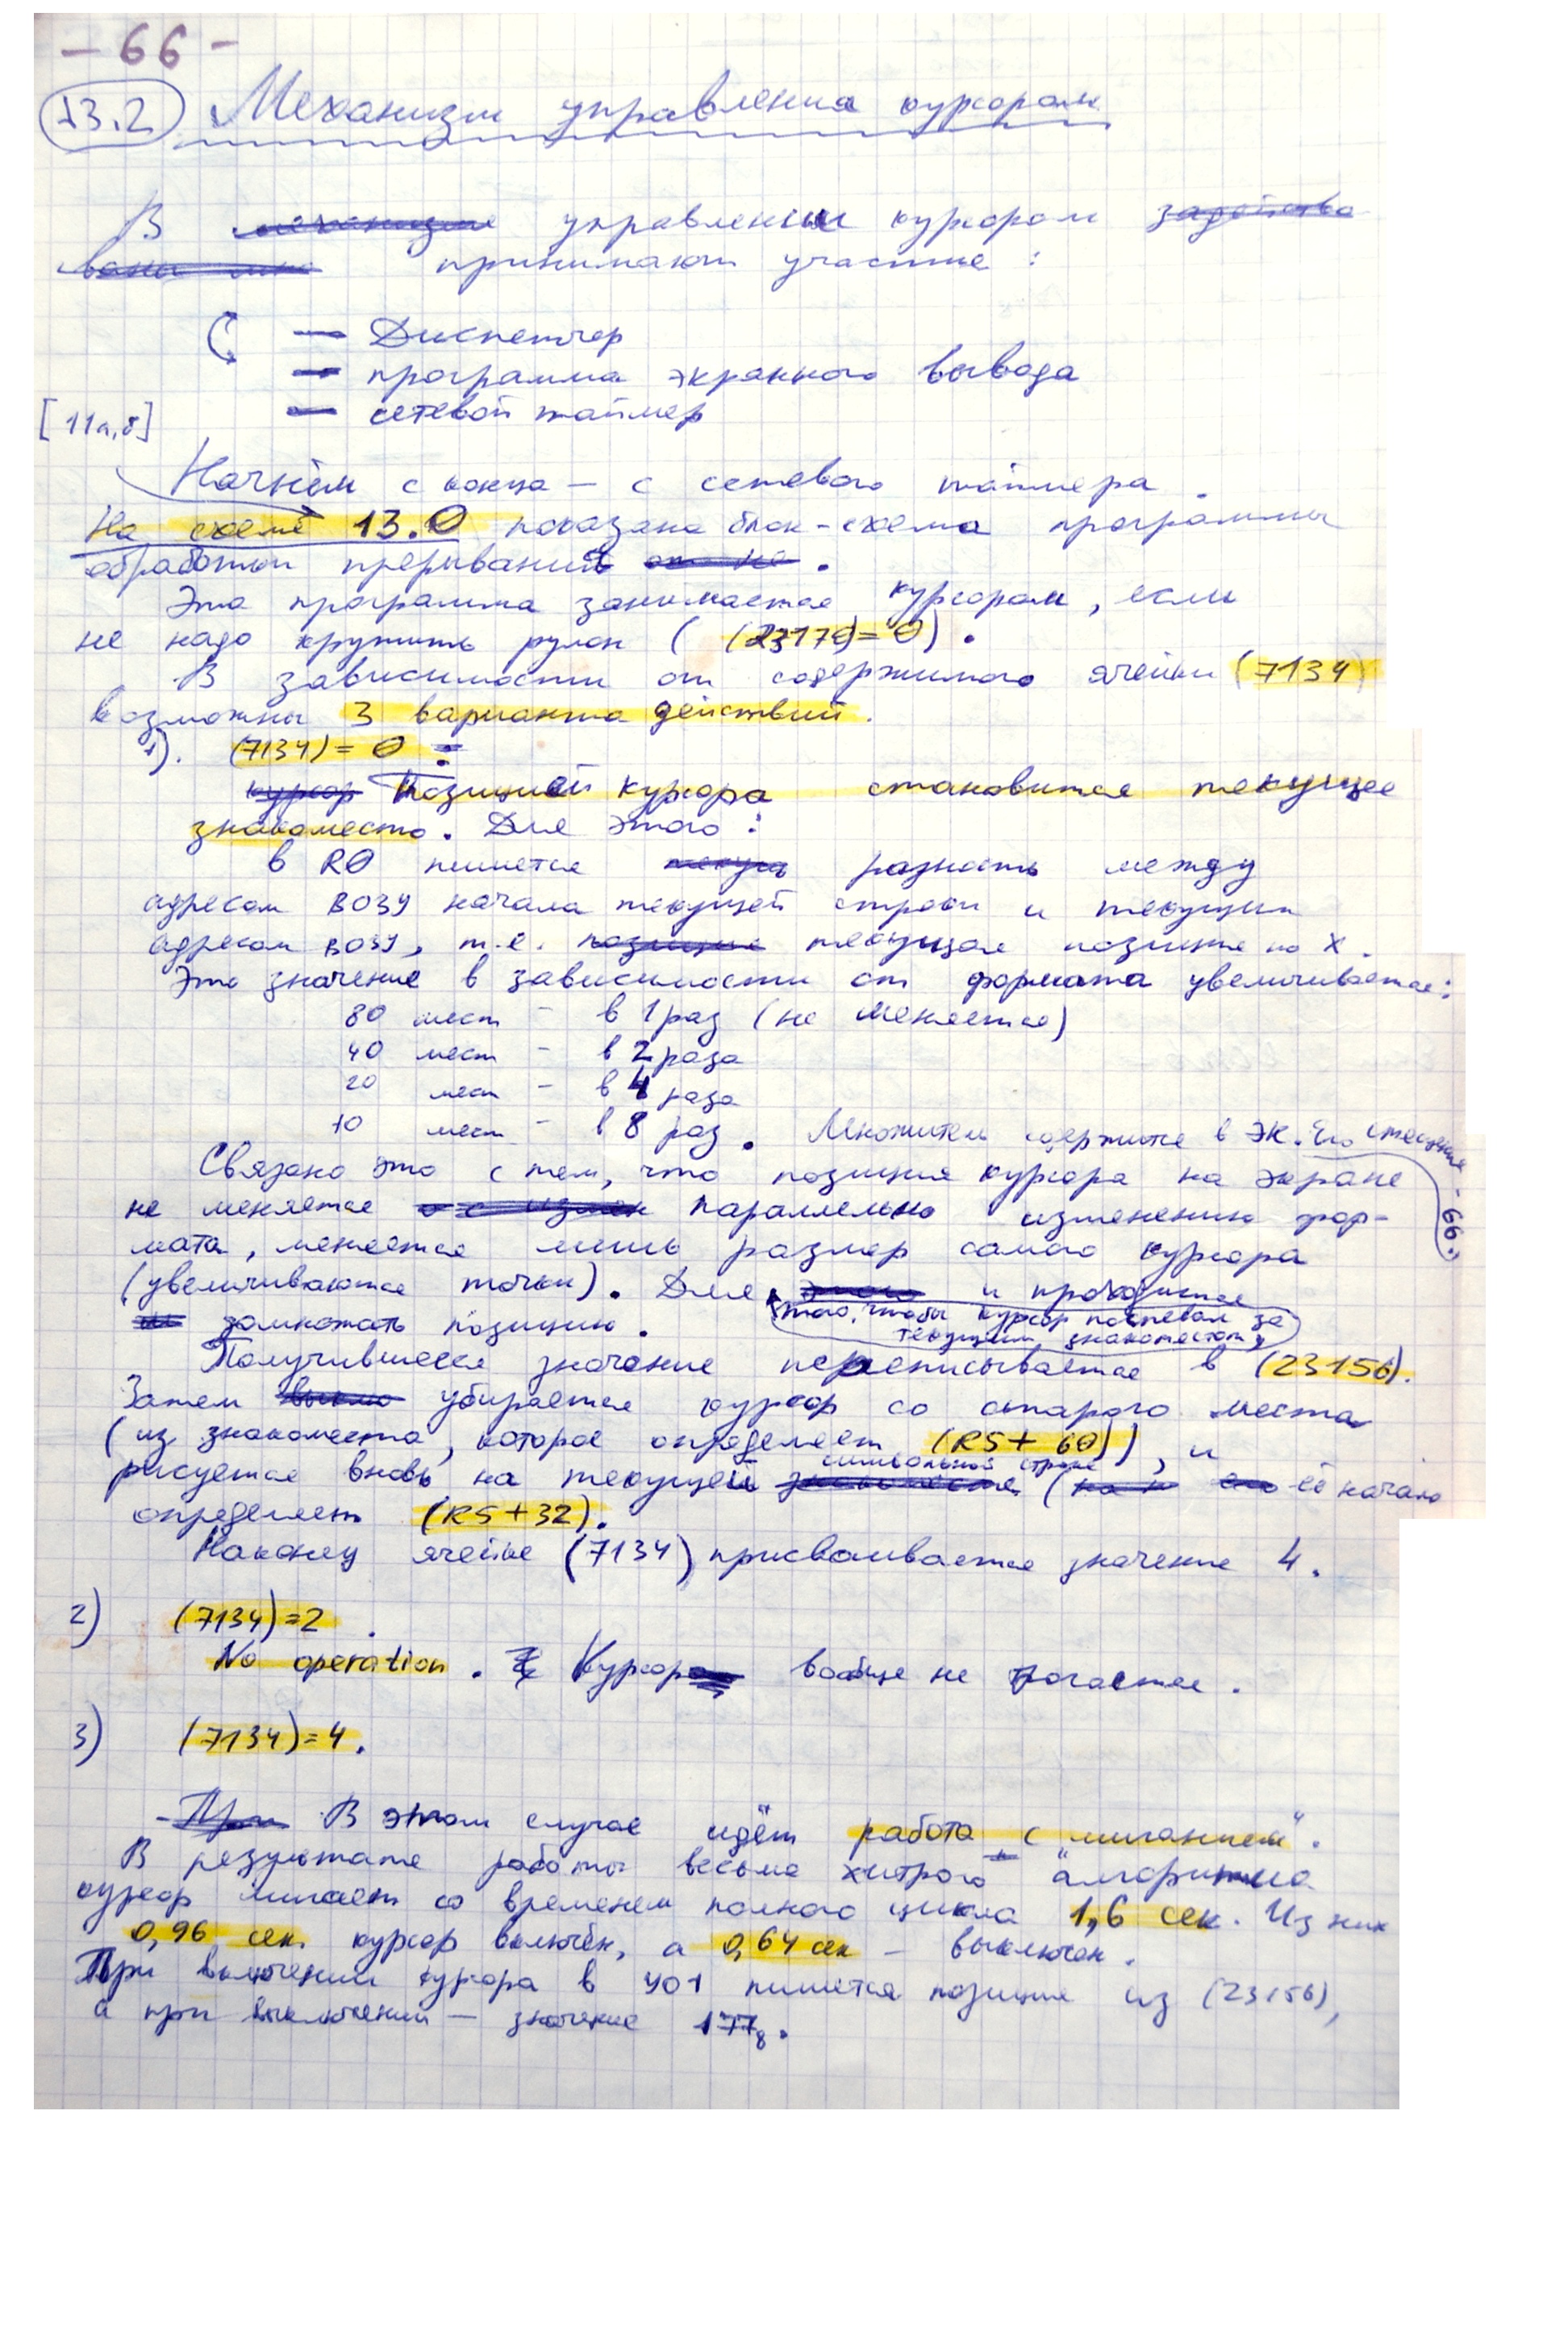 - 66 -
13.2 Механизм управления курсором
В механизме управлении курсором задейство
ваны принимают участие :
— Диспетчер
— программа экранного вывода
— сетевой таймер
[11а,б]
Начнём с конца — с сетевого таймера.
На схеме 13.0 показана блок-схема программы
обработки прерываний .
Эта программа занимается курсором, если
не надо крутить рулон ( (23170)= 0) .
В зависимости от содержимого ячейки (7134)
возможны 3 варианта действий.
1). (7134) = 0 :
курсор Позицией курсора становится текущее
знакоместо. Для этого :
в R0 пишется текущ разность между
адресом ВОЗУ начала текущей строки и текущим
адресом ВОЗУ, т.е. позиция текущая позиция по X.
Это значение в зависимости от формата увеличивается:
80 мест - в 1 раз (не меняется)
40 мест - в 2 раза
20 мест - в 4 раза
10 мест - в 8 раз. Множитель содержится в ЭК. Его смещение - 66.
Связано это с тем, что позиция курсора на экране
не меняется параллельно изменению фор-
мата, меняется лишь размер самого курсора
(увеличиваются точки). Для этого и приходится
того, чтобы курсор поспевал за
текущим знакоместом,
домножать позицию.
Получившееся значение переписывается в (23156).
Затем убирается курсор со старого места
(из знакоместа, которое определяет (R5+ 60)), и
символьной строке
рисуется вновь на текущей знакоместе (её начало
определяет (R5+32).
Наконец ячейке (7134) присваивается значение 4.
2) (7134)=2 .
No operation. Курсор вообще не рогается.
3) (7134)=4.
- При В этом случае идёт работа с "миганием".
В результате работы весьма "хитрого" алгоритма
курсор мигает со временем полного цикла 1,6 сек. Из них
0,96 сек. курсор включён, а 0,64 сек — выключен.
При включении курсора в 401 пишется позиция из (23156),
а при выключении — значение 177₈.